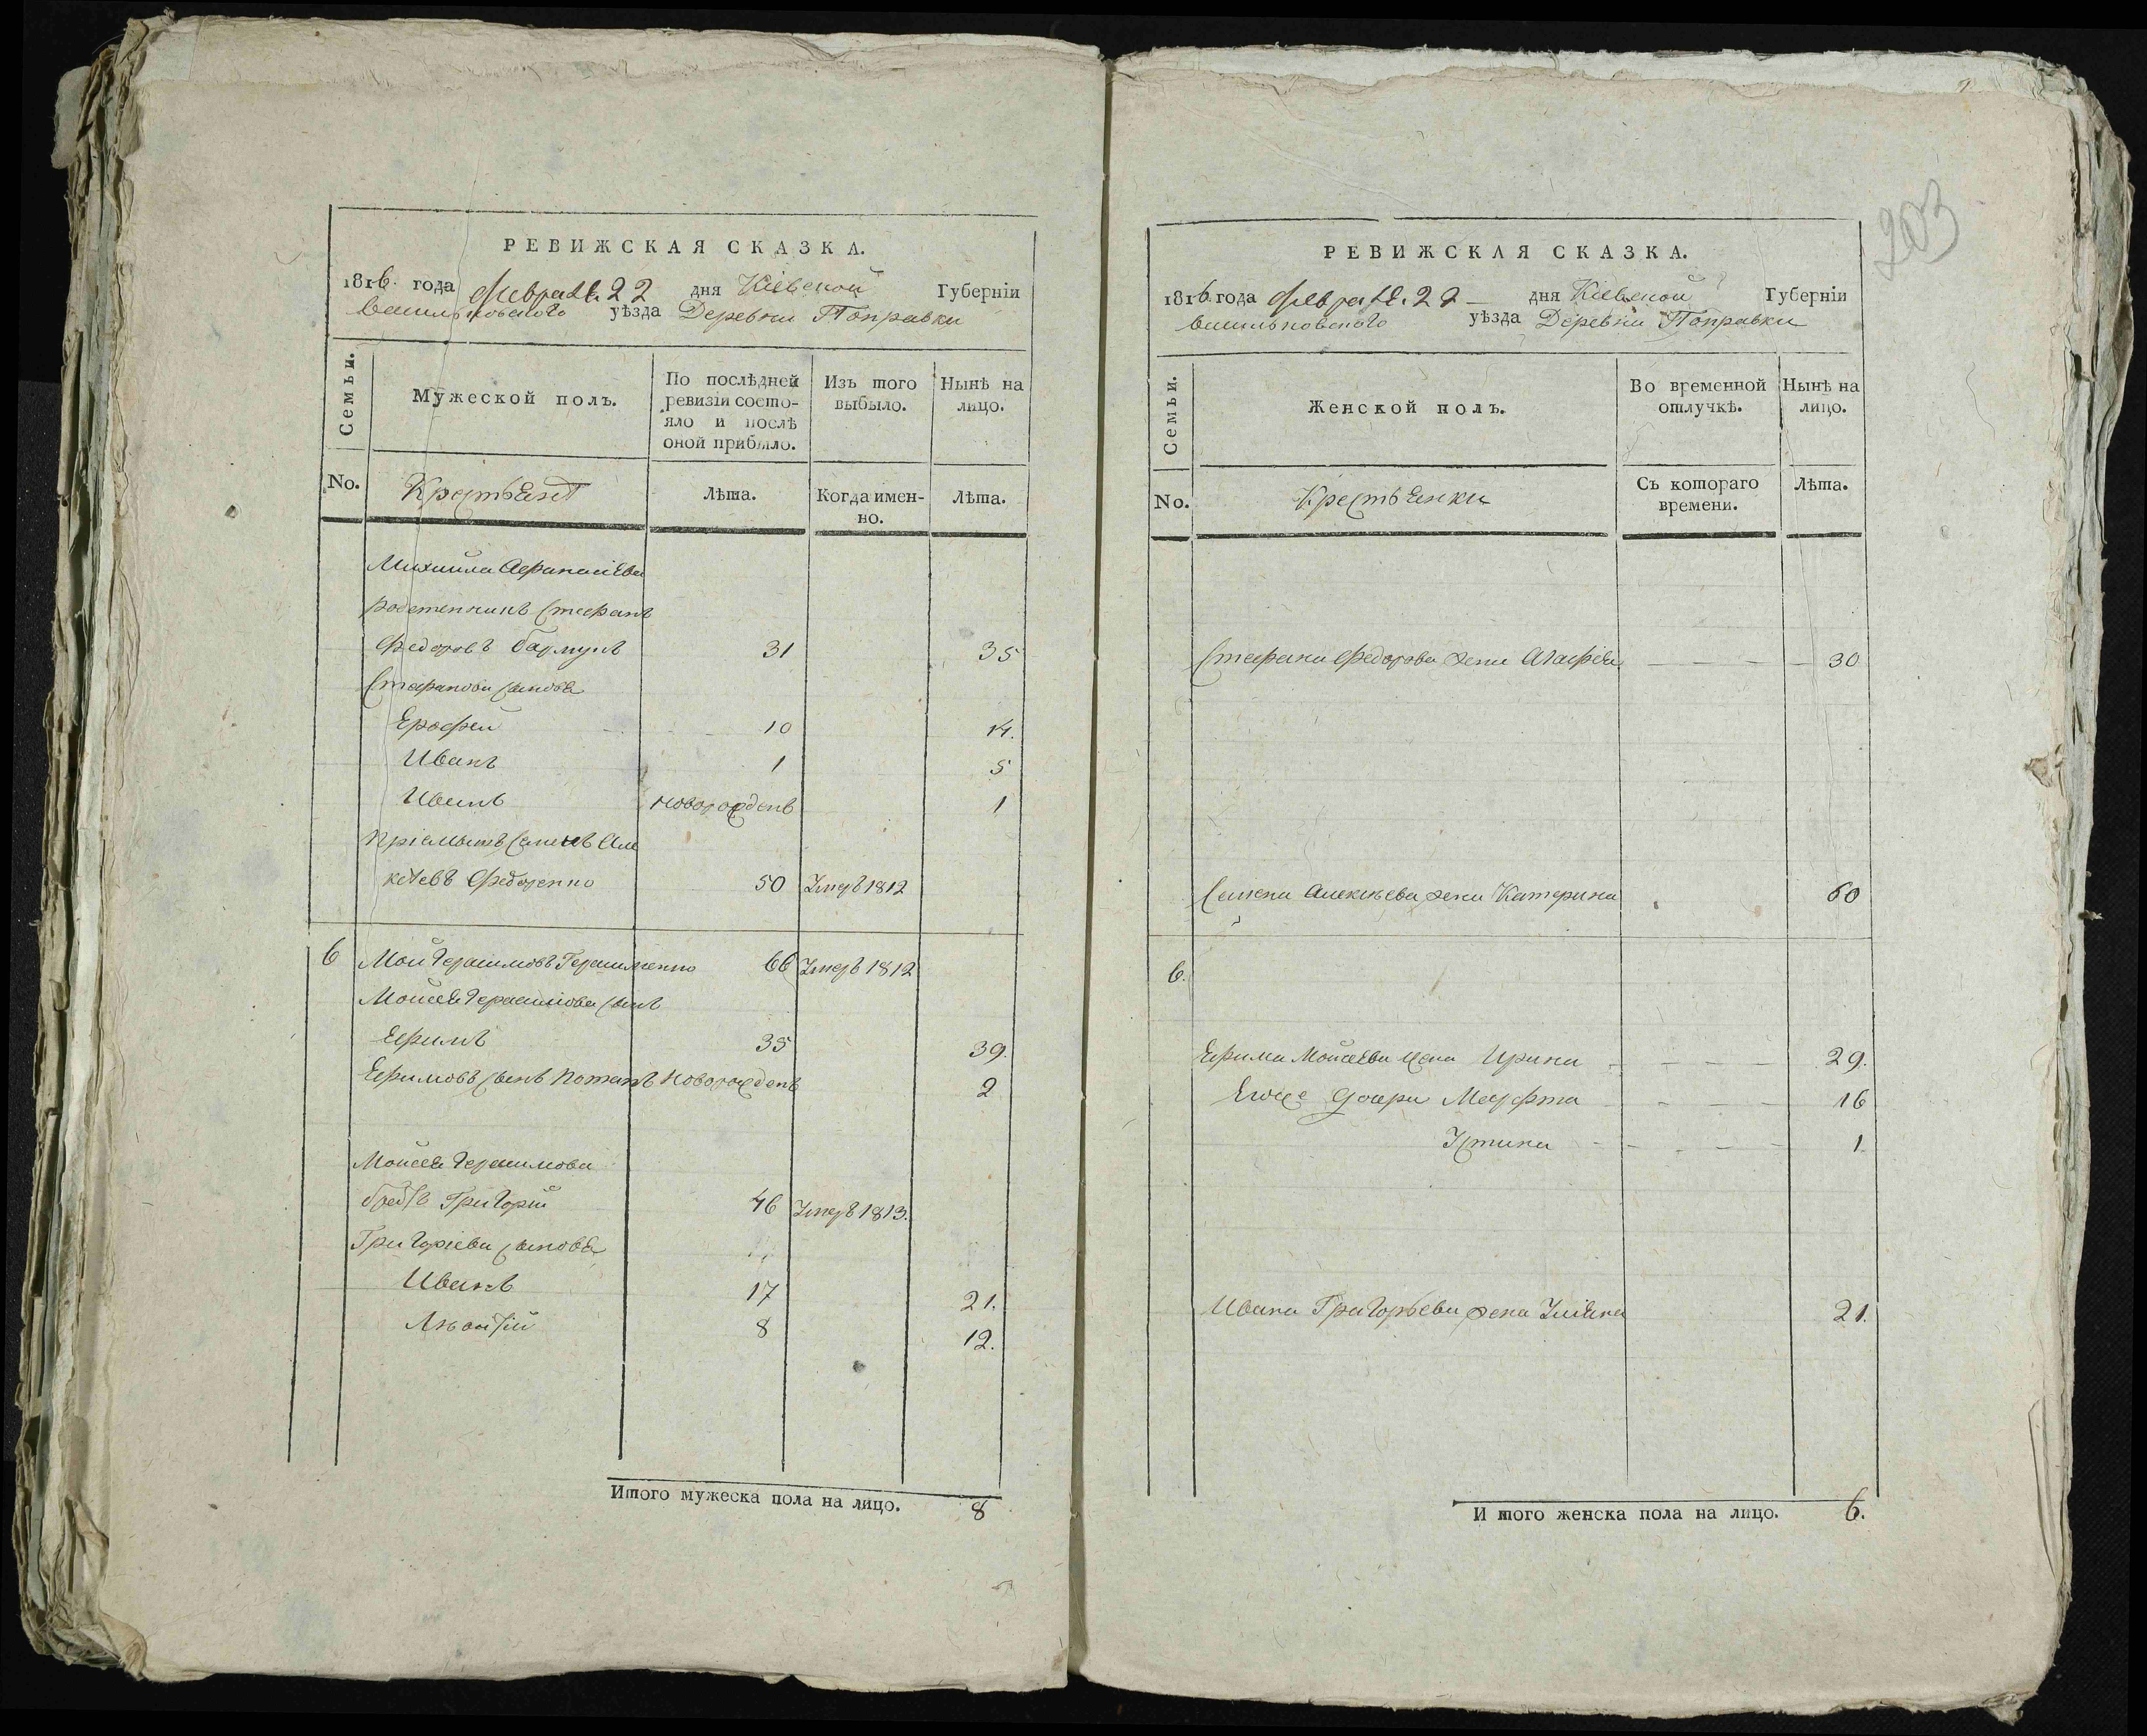 203
РЕВИЖСКАЯ СКАЗКА.
1816. года Февраля 22 дня Кіевской Губерніи
Васильковского уѣзда Деревни Поправки
Семьи.
Мужеской полъ.
По послѣдней ревизіи состо-
яло и послѣ оной прибыло.
Изъ того выбыло.
Нынѣ на лицо.
No.
Крестьянѣ
Лѣта.
Когда имен-
но.
Лѣта.
Михайла Афанасіева
родственникъ Стефанъ
Федоровъ 31 35
Стефанови сыновья
Ерофей 10 14.
Иванъ 1 5
Иванъ новорожденъ 1
Пріймытъ Семенъ Але
ксѣевъ Федоренко 50 Умеръ 1812
6 Мои Герасимовъ Герасименко 66 Умеръ 1812
Моисея Герасимова сынъ
Ефимъ 35 39.
Ефимовъ сынъ Потапъ новорожденъ 2
Моисея Герасимова
братъ Григорій 46 Умеръ 1813.
Григоріеви сыновья
Иванъ 17 21.
8 12.
Итого мужеска пола на лицо. 8
РЕВИЖСКАЯ СКАЗКА.
1816 года Февраля. 22 дня Кіевской Губерніи
Васильковского уѣзда Деревни Поправки
Семьи.
Женской полъ.
Во временной отлучкѣ.
Нынѣ на лицо.
No.
Крестьянки
Съ котораго времени.
Лѣта.
Стефана Федорова жена Агафія 30
Семена Алексѣева жена Катерина 60
6.
Ефима Моисеева жена Ирина 29.
Егоже дочери Марфта 16
Устина 1.
Ивана Григорьева жена Уліяна 21.
Итого женска пола на лицо. 6.